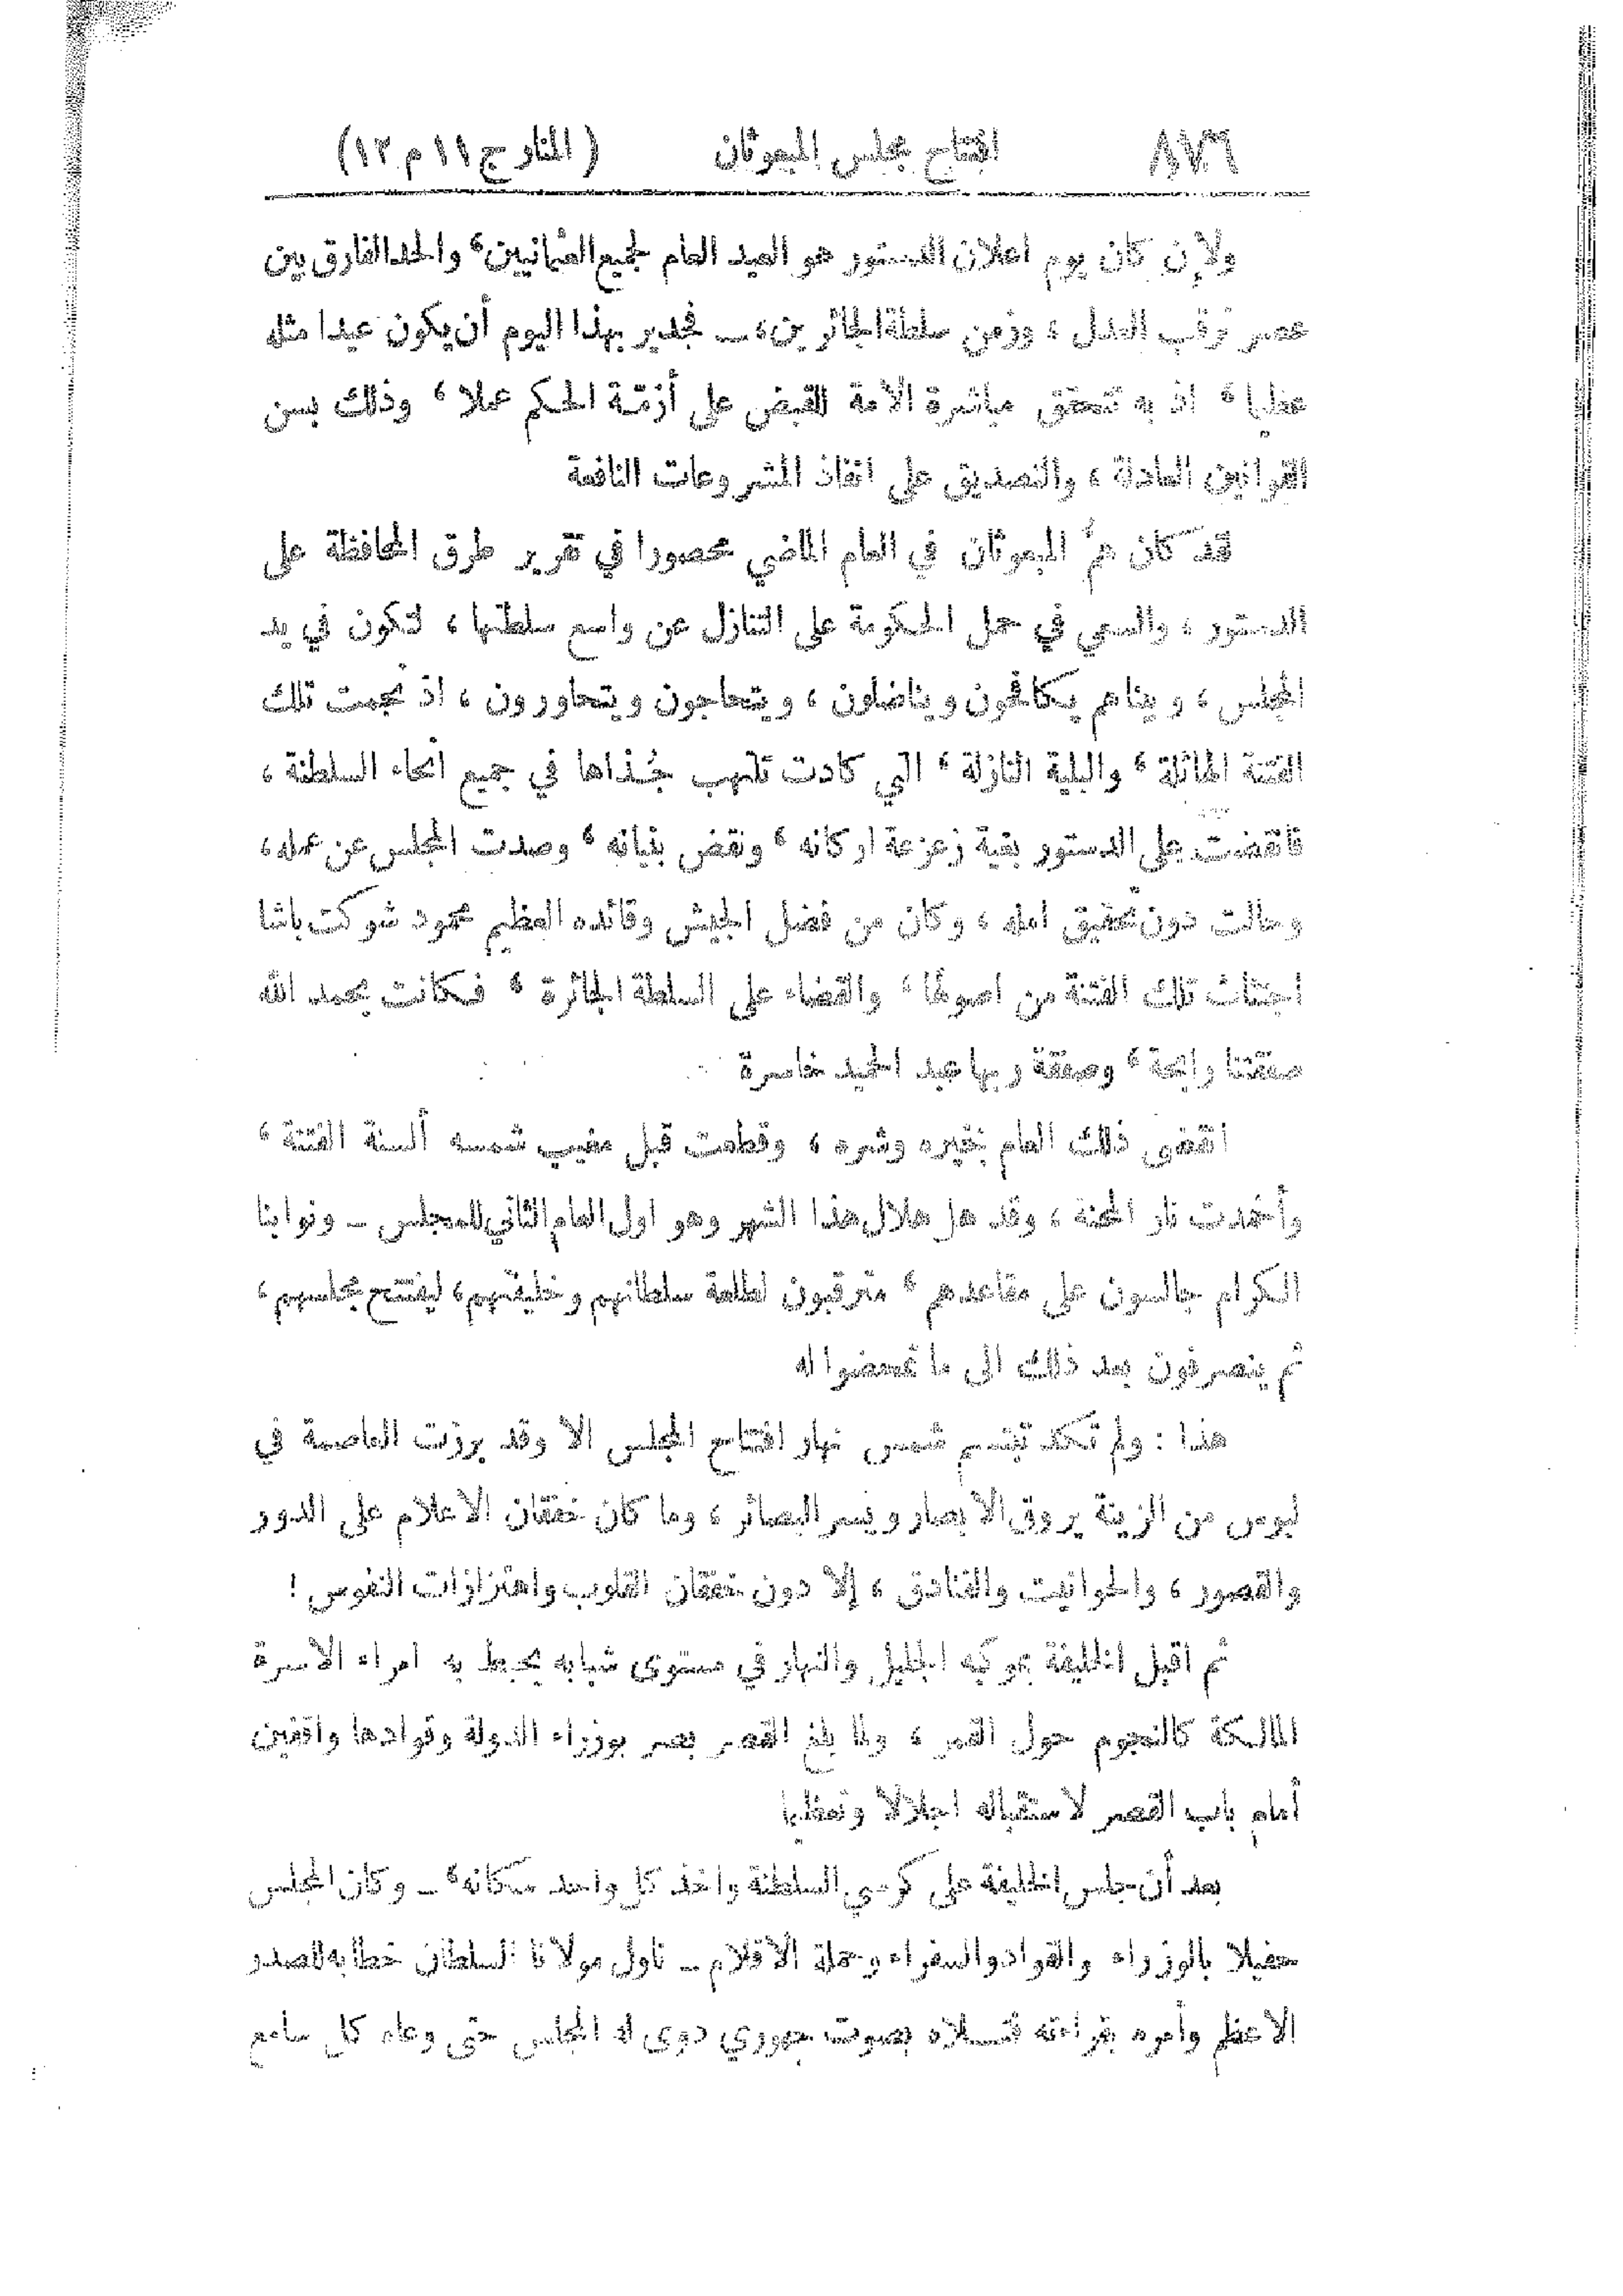 ٨٧٦ افتتاح مجلس المبعوثان (المنار ج ١١ م ١٢)
ولإن كان يوم اعلان الدستور هو العيد العام لجميع العثمانيين، والحد الفارق بين
عصر ترقب العدل، وزمن سلطة الجائرين، ــ فجدير بهذا اليوم أن يكون عيدا مثله
عظيما، اذ به تتحقق مباشرة الامة للقبض على أزمّة الحكم عملا، وذلك بسن
القوانين العادلة، والتصديق على انفاذ المشروعات النافعة
قد كان همُّ المبعوثان في العام الماضي محصورا في تقرير طرق المحافظة على
الدستور، والسعي في حمل الحكومة على التنازل عن واسع سلطتها، لتكون في يد
المجلس، وبيناهم يكافحون ويناضلون، ويتحاجون ويتحاورون، اذ نجمت تلك
الفتنة الهائلة، والبلية النازلة، التي كادت تلتهب جُذاها في جميع انحاء السلطنة،
فانقضت على الدستور بغية زعزعة اركانه، ونقض بنيانه، وصدت المجلس عن عمله،
وحالت دون تحقيق امله، وكان من فضل الجيش وقائده العظيم محمود شوكت باشا
اجتثاث تلك الفتنة من اصولها، والقضاء على السلطة الجائرة، فكانت بحمد الله
صفقتنا رابحة، وصفقة ربها عبد الحميد خاسرة
انقضى ذلك العام بخيره وشره، وقطعت قبل مغيب شمسه ألسنة الفتنة،
وأخمدت نار المحنة، وقد هل هلال هذا الشهر وهو اول العام الثاني للمجلس ــ ونوابنا
الكرام جالسون على مقاعدهم، مترقبون لطلعة سلطانهم وخليفتهم، ليفتتح مجلسهم،
ثم ينصرفون بعد ذلك الى ما تمحضوا له
هذا : ولم تكد تبتسم شمس نهار افتتاح المجلس الا وقد برزت العاصمة في
لبوس من الزينة يروق الابصار ويسر البصائر، وما كان خفقان الاعلام على الدور
والقصور، والحوانيت والفنادق، إلا دون خفقان القلوب واهتزازات النفوس !
ثم اقبل الخليفة بموكبه الجليل والنهار في مستوى شبابه يحيط به امراء الاسرة
المالكة كالنجوم حول القمر، ولما بلغ القصر بصر بوزراء الدولة وقوادها واقفين
أمام باب القصر لاستقباله اجلالا وتعظيما
بعد أن جلس الخليفة على كرسي السلطنة واخذ كل واحد مكانه، ــ وكان المجلس
حفيلا بالوزراء والقواد والسفراء وحملة الاقلام ــ ناول مولانا السلطان خطابه للصدر
الاعظم وأمره بقراءته فتلاه بصوت جهوري دوى له المجلس حتى وعاه كل سامع